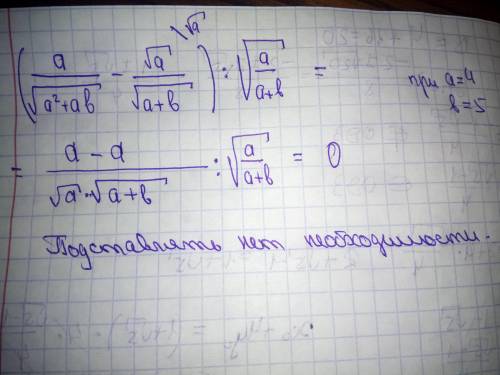 (a/√(a²+ab) − √a/√(a+b) \√a) : √(a/(a+b)) = при a=4
b=5
= (a − a)/(√a · √(a+b)) : √(a/(a+b)) = 0
Подставлять нет необходимости.